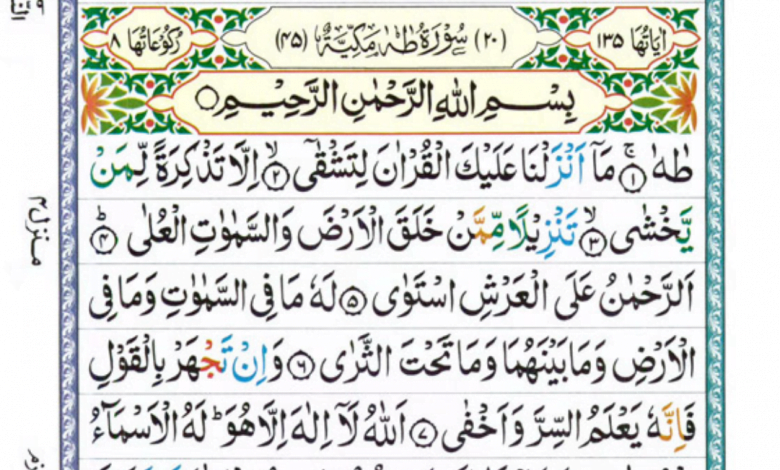 اٰیَاتُہَا ۱۳۵ (۲۰) سُوْرَۃُ طٰہٰ مَکِّیَّۃٌ (۴۵) رُکُوْعَاتُہَا ۸
بِسْمِ اللّٰہِ الرَّحْمٰنِ الرَّحِیْمِ
طٰہٰ ۚ﴿۱﴾ مَاۤ اَنْزَلْنَا عَلَیْكَ الْقُرْاٰنَ لِتَشْقٰۤی ۙ﴿۲﴾ اِلَّا تَذْکِرَۃً لِّمَنْ
یَّخْشٰی ۙ﴿۳﴾ تَنْزِیْلًا مِّمَّنْ خَلَقَ الْاَرْضَ وَالسَّمٰوٰتِ الْعُلٰی ؕ﴿۴﴾
اَلرَّحْمٰنُ عَلَی الْعَرْشِ اسْتَوٰی ﴿۵﴾ لَهٗ مَا فِی السَّمٰوٰتِ وَمَا فِی
الْاَرْضِ وَمَا بَیْنَهُمَا وَمَا تَحْتَ الثَّرٰی ﴿۶﴾ وَاِنْ تَجْهَرْ بِالْقَوْلِ
فَاِنَّهٗ یَعْلَمُ السِّرَّ وَاَخْفٰی ﴿۷﴾ اَللّٰهُ لَاۤ اِلٰهَ اِلَّا هُوَ ؕ لَهُ الْاَسْمَآءُ
منزل ۴